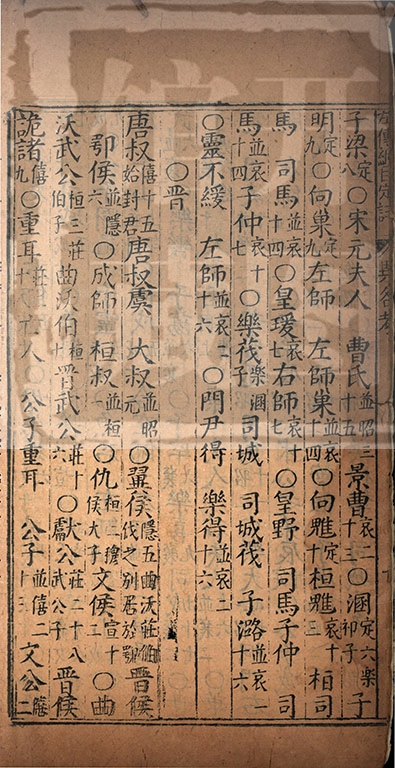 左傳綱目定註 異名考
子梁定八○宋元夫人 曹氏並昭三十五景曹哀二十三○溷定六樂祁子 子
明定九○向巢定九左師 左師巢並哀十四○向魋定十桓魋哀十三 桓司
馬 司馬並哀十四○皇瑗哀七右師哀十七○皇野 司馬子仲 司
馬並哀十四子仲哀十七○樂茷樂溷子司城 司城茷 子潞並哀二十六
○靈不緩 左師並哀二十六○門尹得 樂得並哀二十六
○晉
唐叔僖十五始封君唐叔虞 大叔並昭元○翼侯隱五曲沃莊伯伐之別居於鄂晉侯
鄂侯並隱六○成師 桓叔並桓二○仇桓二穆侯大子文侯宣十二○曲
沃武公桓三莊伯子曲沃伯桓七晉武公莊十六○獻公莊二十八武公子晉侯
詭諸僖九○重耳莊二十八亡人○公子重耳 公子並僖二十三文公僖二